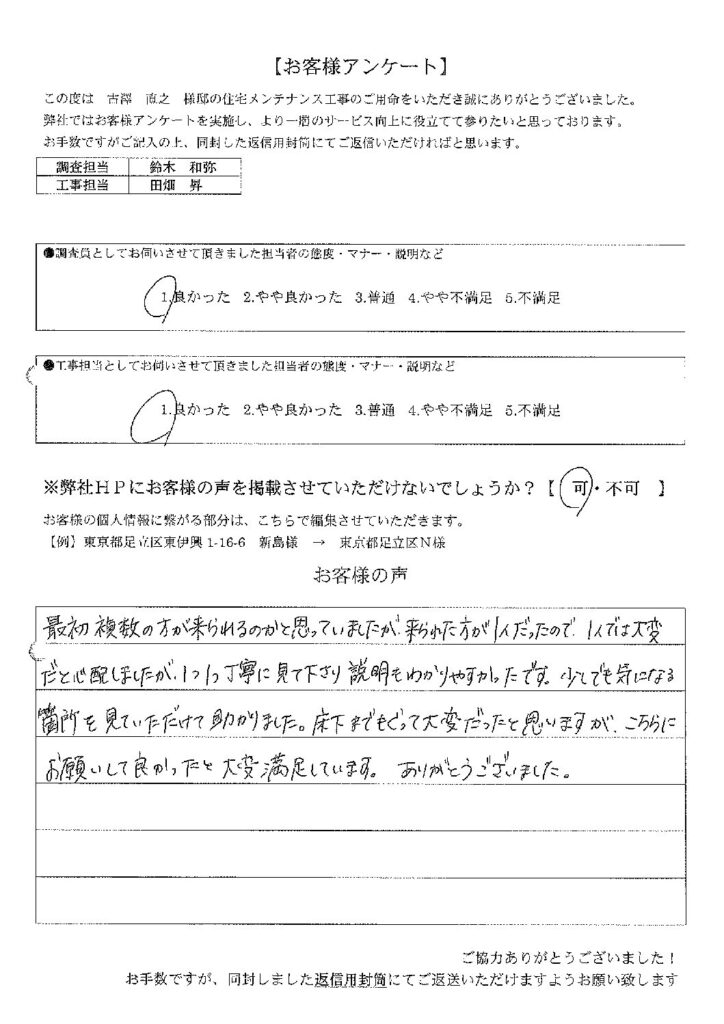 【お客様アンケート】
この度は　古澤　直之　様邸の住宅メンテナンス工事のご用命をいただき誠にありがとうございました。
弊社ではお客様アンケートを実施し、より一層のサービス向上に役立てて参りたいと思っております。
お手数ですがご記入の上、同封した返信用封筒にてご返信いただければと思います。
調査担当　鈴木　和弥
工事担当　田畑　昇
●調査員としてお伺いさせて頂きました担当者の態度・マナー・説明など
1.良かった　2.やや良かった　3.普通　4.やや不満足　5.不満足
●工事担当としてお伺いさせて頂きました担当者の態度・マナー・説明など
1.良かった　2.やや良かった　3.普通　4.やや不満足　5.不満足
※弊社ＨＰにお客様の声を掲載させていただけないでしょうか？【　可・不可　】
お客様の個人情報に繋がる部分は、こちらで編集させていただきます。
【例】東京都足立区東伊興 1-16-6　新島様　→　東京都足立区Ｎ様
お客様の声
最初複数の方が来られるのかと思っていましたが、来られた方が1人だったので、1人では大変
だと心配しましたが、1つ1つ丁寧に見て下さり説明もわかりやすかったです。少しでも気になる
箇所を見ていただけて助かりました。床下までもぐって大変だったと思いますが、こちらに
お願いして良かったと大変満足しています。　ありがとうございました。
ご協力ありがとうございました！
お手数ですが、同封しました返信用封筒にてご返送いただけますようお願い致します